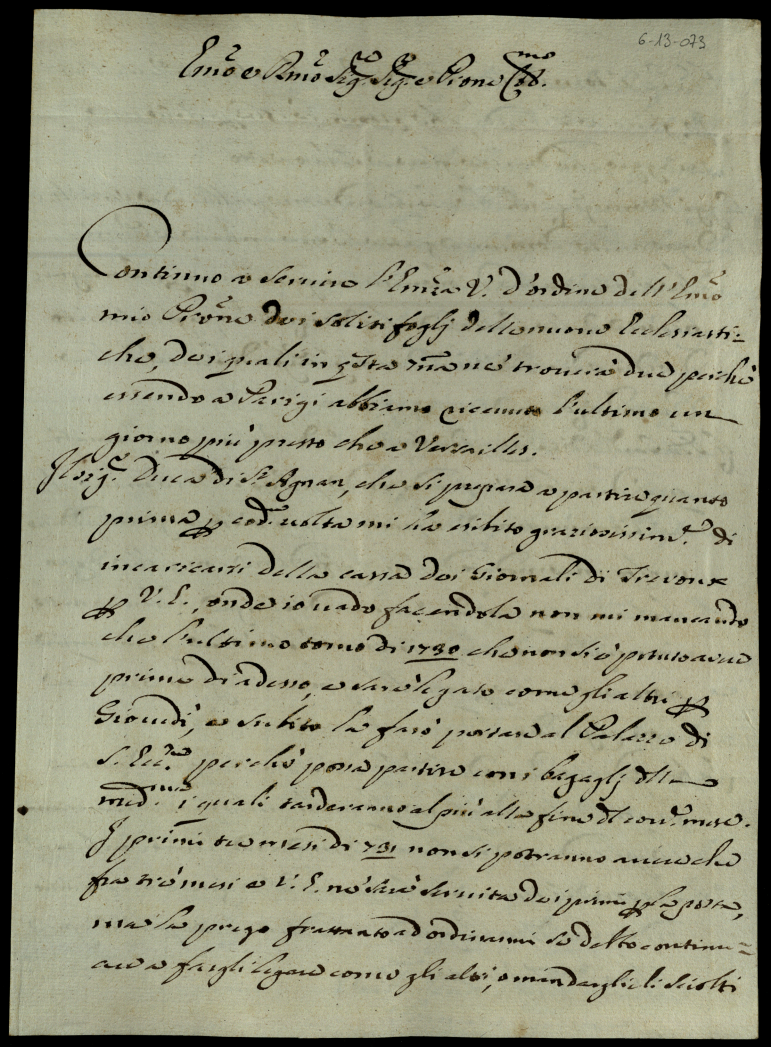 6-13-073
Em̃o e Rm̃o Sig.r Sig.r e Prone Col.mo
Continuo a servire l'Em̃za V. d'ordine dell'Em̃o
mio Prõne dei soliti foglj delle nuove Ecclesiasti=
che, dei quali in q̃sta mã ne troverà due perchè
essendo a Parigi abbiamo ricevuto l'ultimo un
giorno più presto che a Versailles.
Il Sig.r Duca di S.t Agnan, che si prepara a partire quanto
prima p cod.a volta mi ha esibito graziosissim.e di
incaricarsi della cassa dei Giornali di Trevoux
p V. E., onde io vado facendola non mi mancando
che l'ultimo tomo di 1730 che non si è potuto avere
prima di adesso, e sarà legato come gli altri p
Giovedì, e subito la farò portare al Palazzo di
S. Ecc.za perchè possa partire con i bagaglj della
med.ma i quali tarderanno al più alla fine del corr.e mese.
I primi tre mesi di 731 non si potranno avere che
fra tre mesi e V. E. ne sarà servita dei primi p la posta,
ma la prego frattanto ad ordinarmi se debbo continu=
are a fargli legare come gli altri, o mandarglieli sciolti